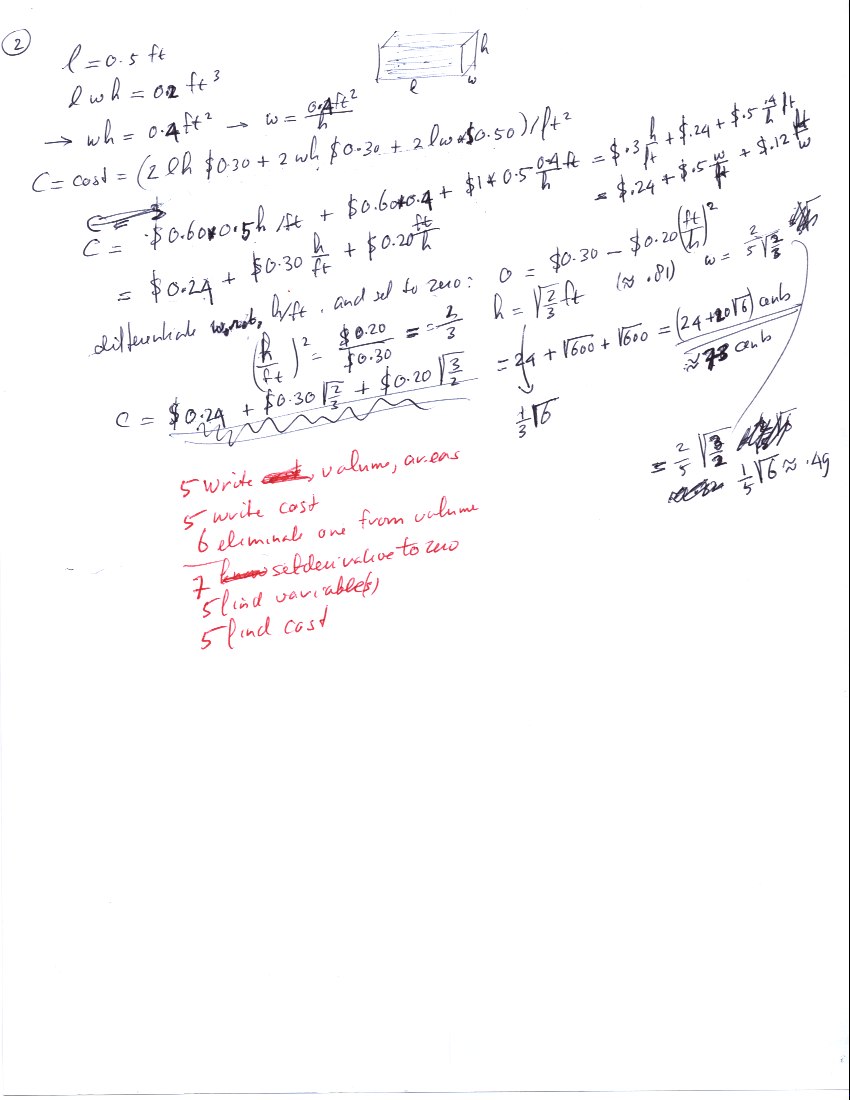 2
l = 0.5 ft
l w h = 0.2 ft³
h
l
w
→ wh = 0.4 ft² → w = 0.4ft²/h
C = cost = (2 l h $0.30 + 2 wh $0.30 + 2 l w $0.50) / ft²
= $.3 h/ft + $.24 + $.5 .4/h ft
= $.24 + $.5 w/ft + $.12 ft/w
C = $0.60*0.5h /ft + $0.60*0.4 + $1*0.5 0.4 ft/h
= $0.24 + $0.30 h/ft + $0.20 ft/h
differentiate w.r.t. h/ft, and set to zero:
0 = $0.30 − $0.20 (ft/h)²
(h/ft)² = $0.20/$0.30 = 2/3
h = √(2/3) ft (≈ .81) w = 2/5
C = $0.24 + $0.30 √(2/3) + $0.20 √(3/2)
= 24 + √600 + √600 = (24+20√6) cents
≈ 73 cents
1/3 √6
= 2/5 √(3/2)
1/5 √6 ≈ .49
5 write , volume, areas
5 write cost
6 eliminate one from volume
7 set derivative to zero
5 find variable(s)
5 find cost